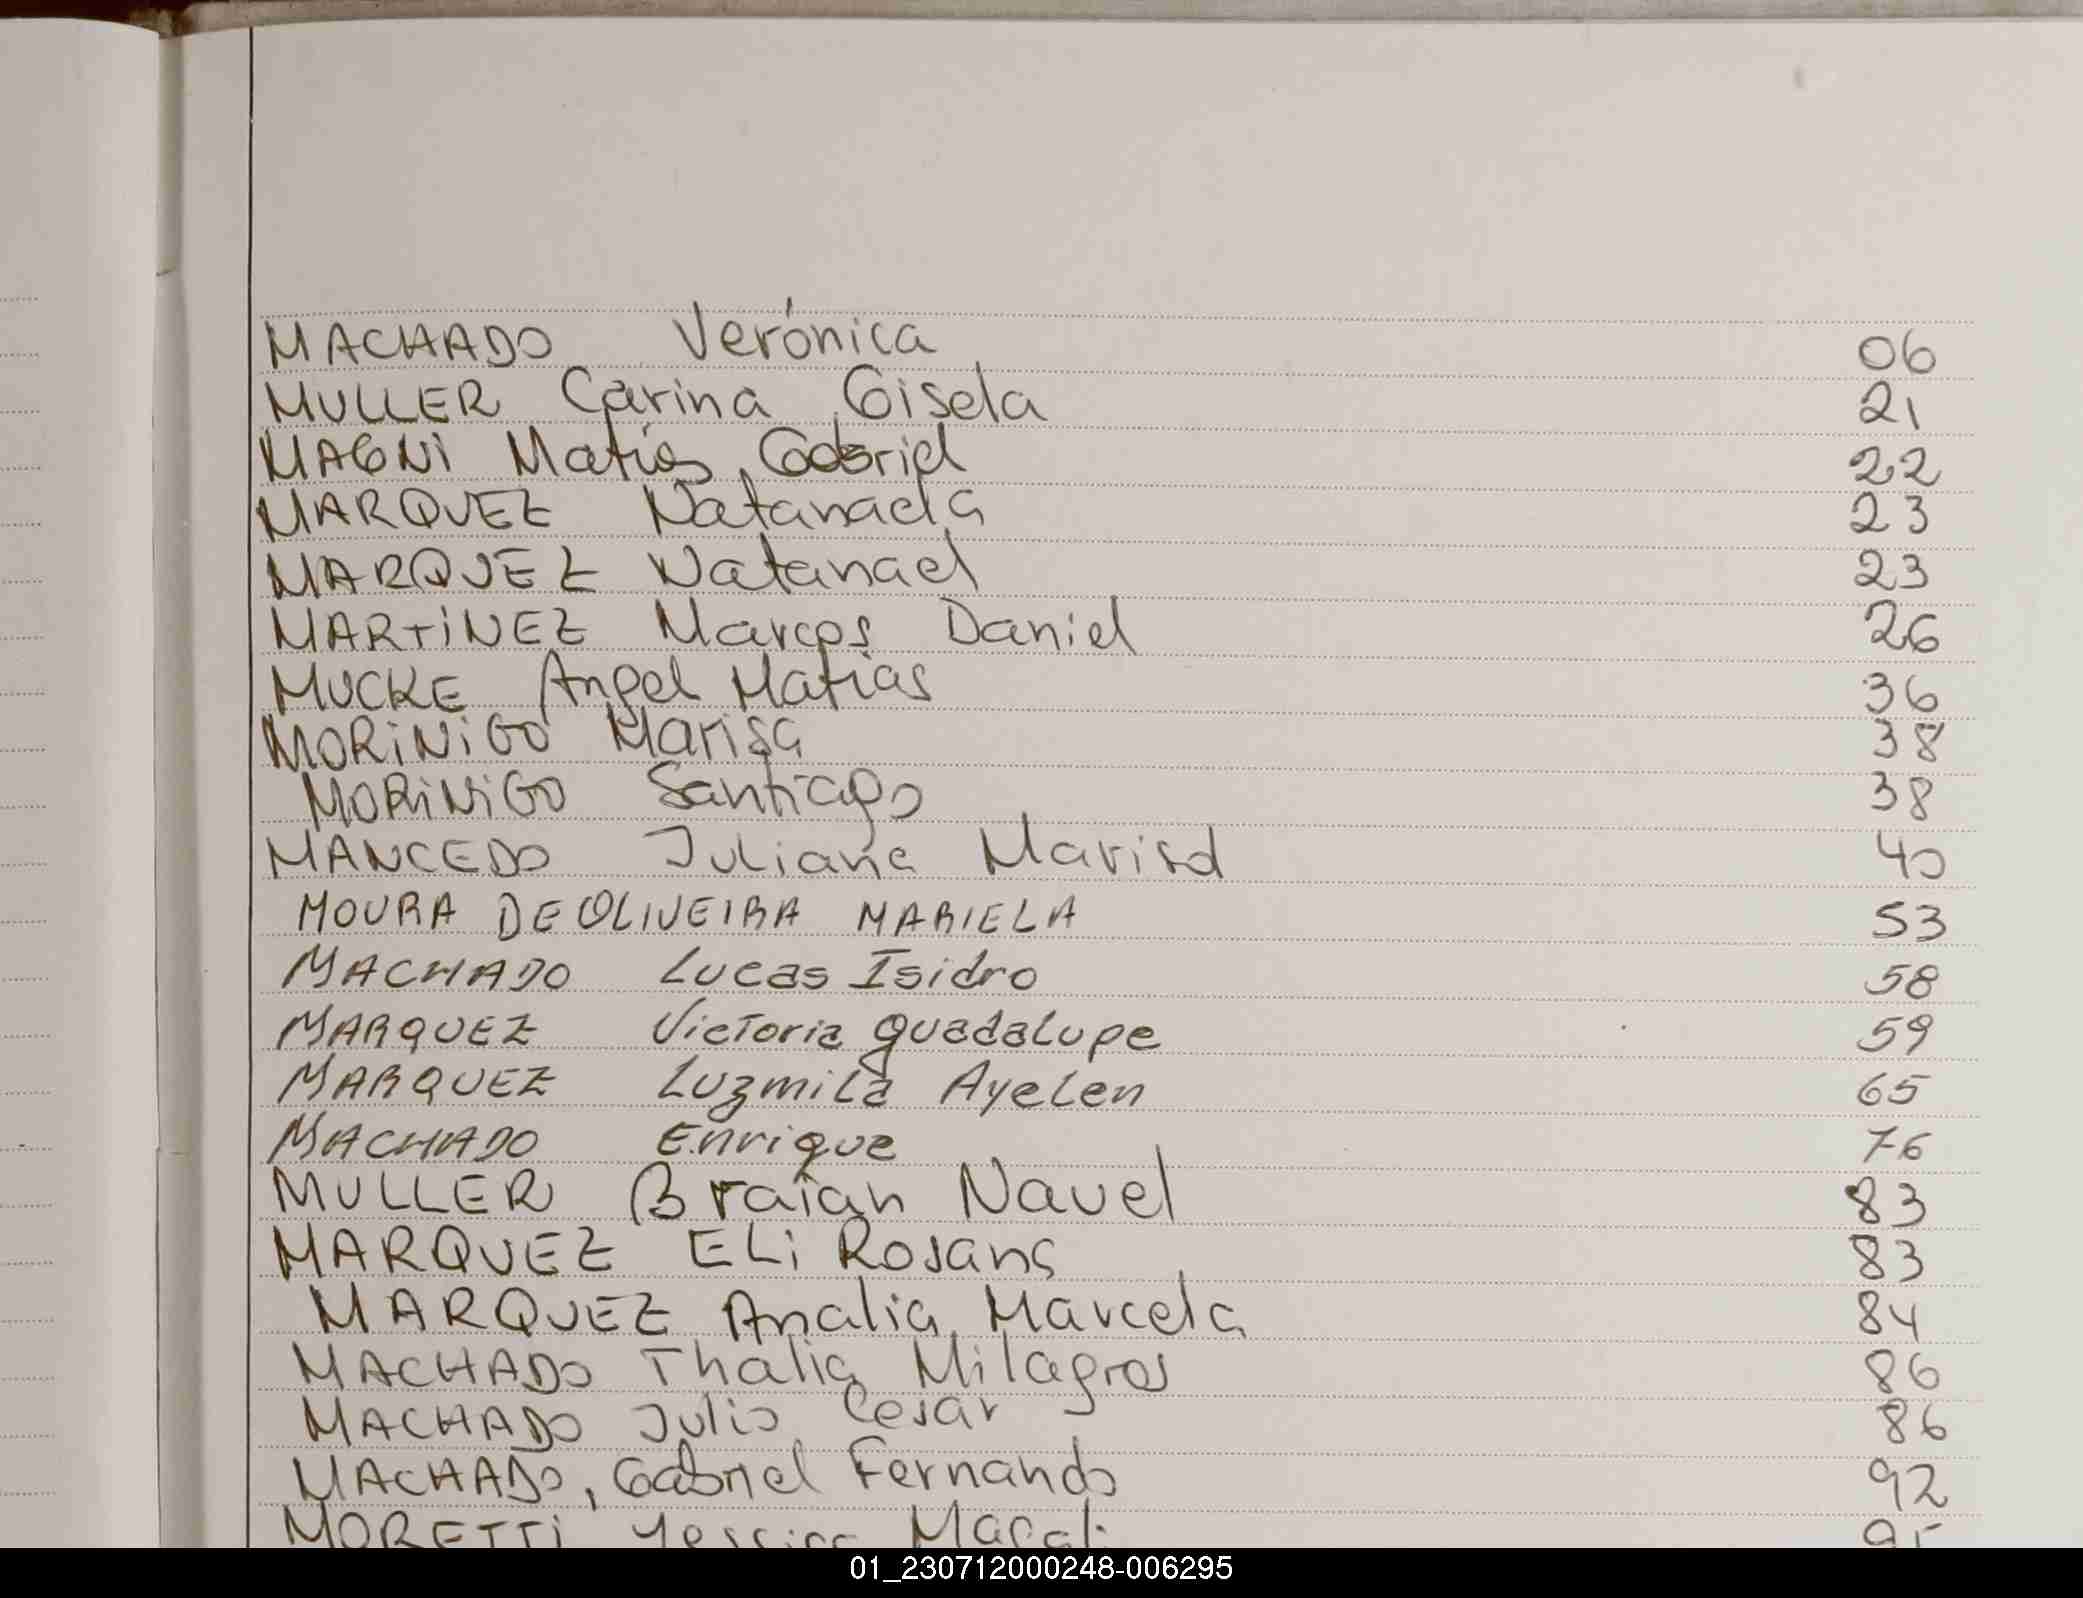 MACHADO Verónica 06
MULLER Carina Gisela 21
MAGNI Matías Gabriel 22
MARQUEZ Natanaela 23
MARQUEZ Natanael 23
MARTiNEZ Marcos Daniel 26
MUCKE Angel Matías 36
MORiNiGO Marisa 38
MORiNiGO Santiago 38
MANCEDO Juliana Marisol 40
MOURA DE OLIVEIRA MARIELA 53
MACHADO Lucas Isidro 58
MARQUEZ Victoria guadalupe 59
MARQUEZ Luzmila Ayelen 65
MACHADO Enrique 76
MULLER Braian Nauel 83
MARQUEZ ELi Rosana 83
MARQUEZ Analia Marcela 84
MACHADO Thalia Milagros 86
MACHADO Julio Cesar 86
MACHADO, Gabriel Fernando 92
MORETTi Yessica Magali 95
01_230712000248-006295